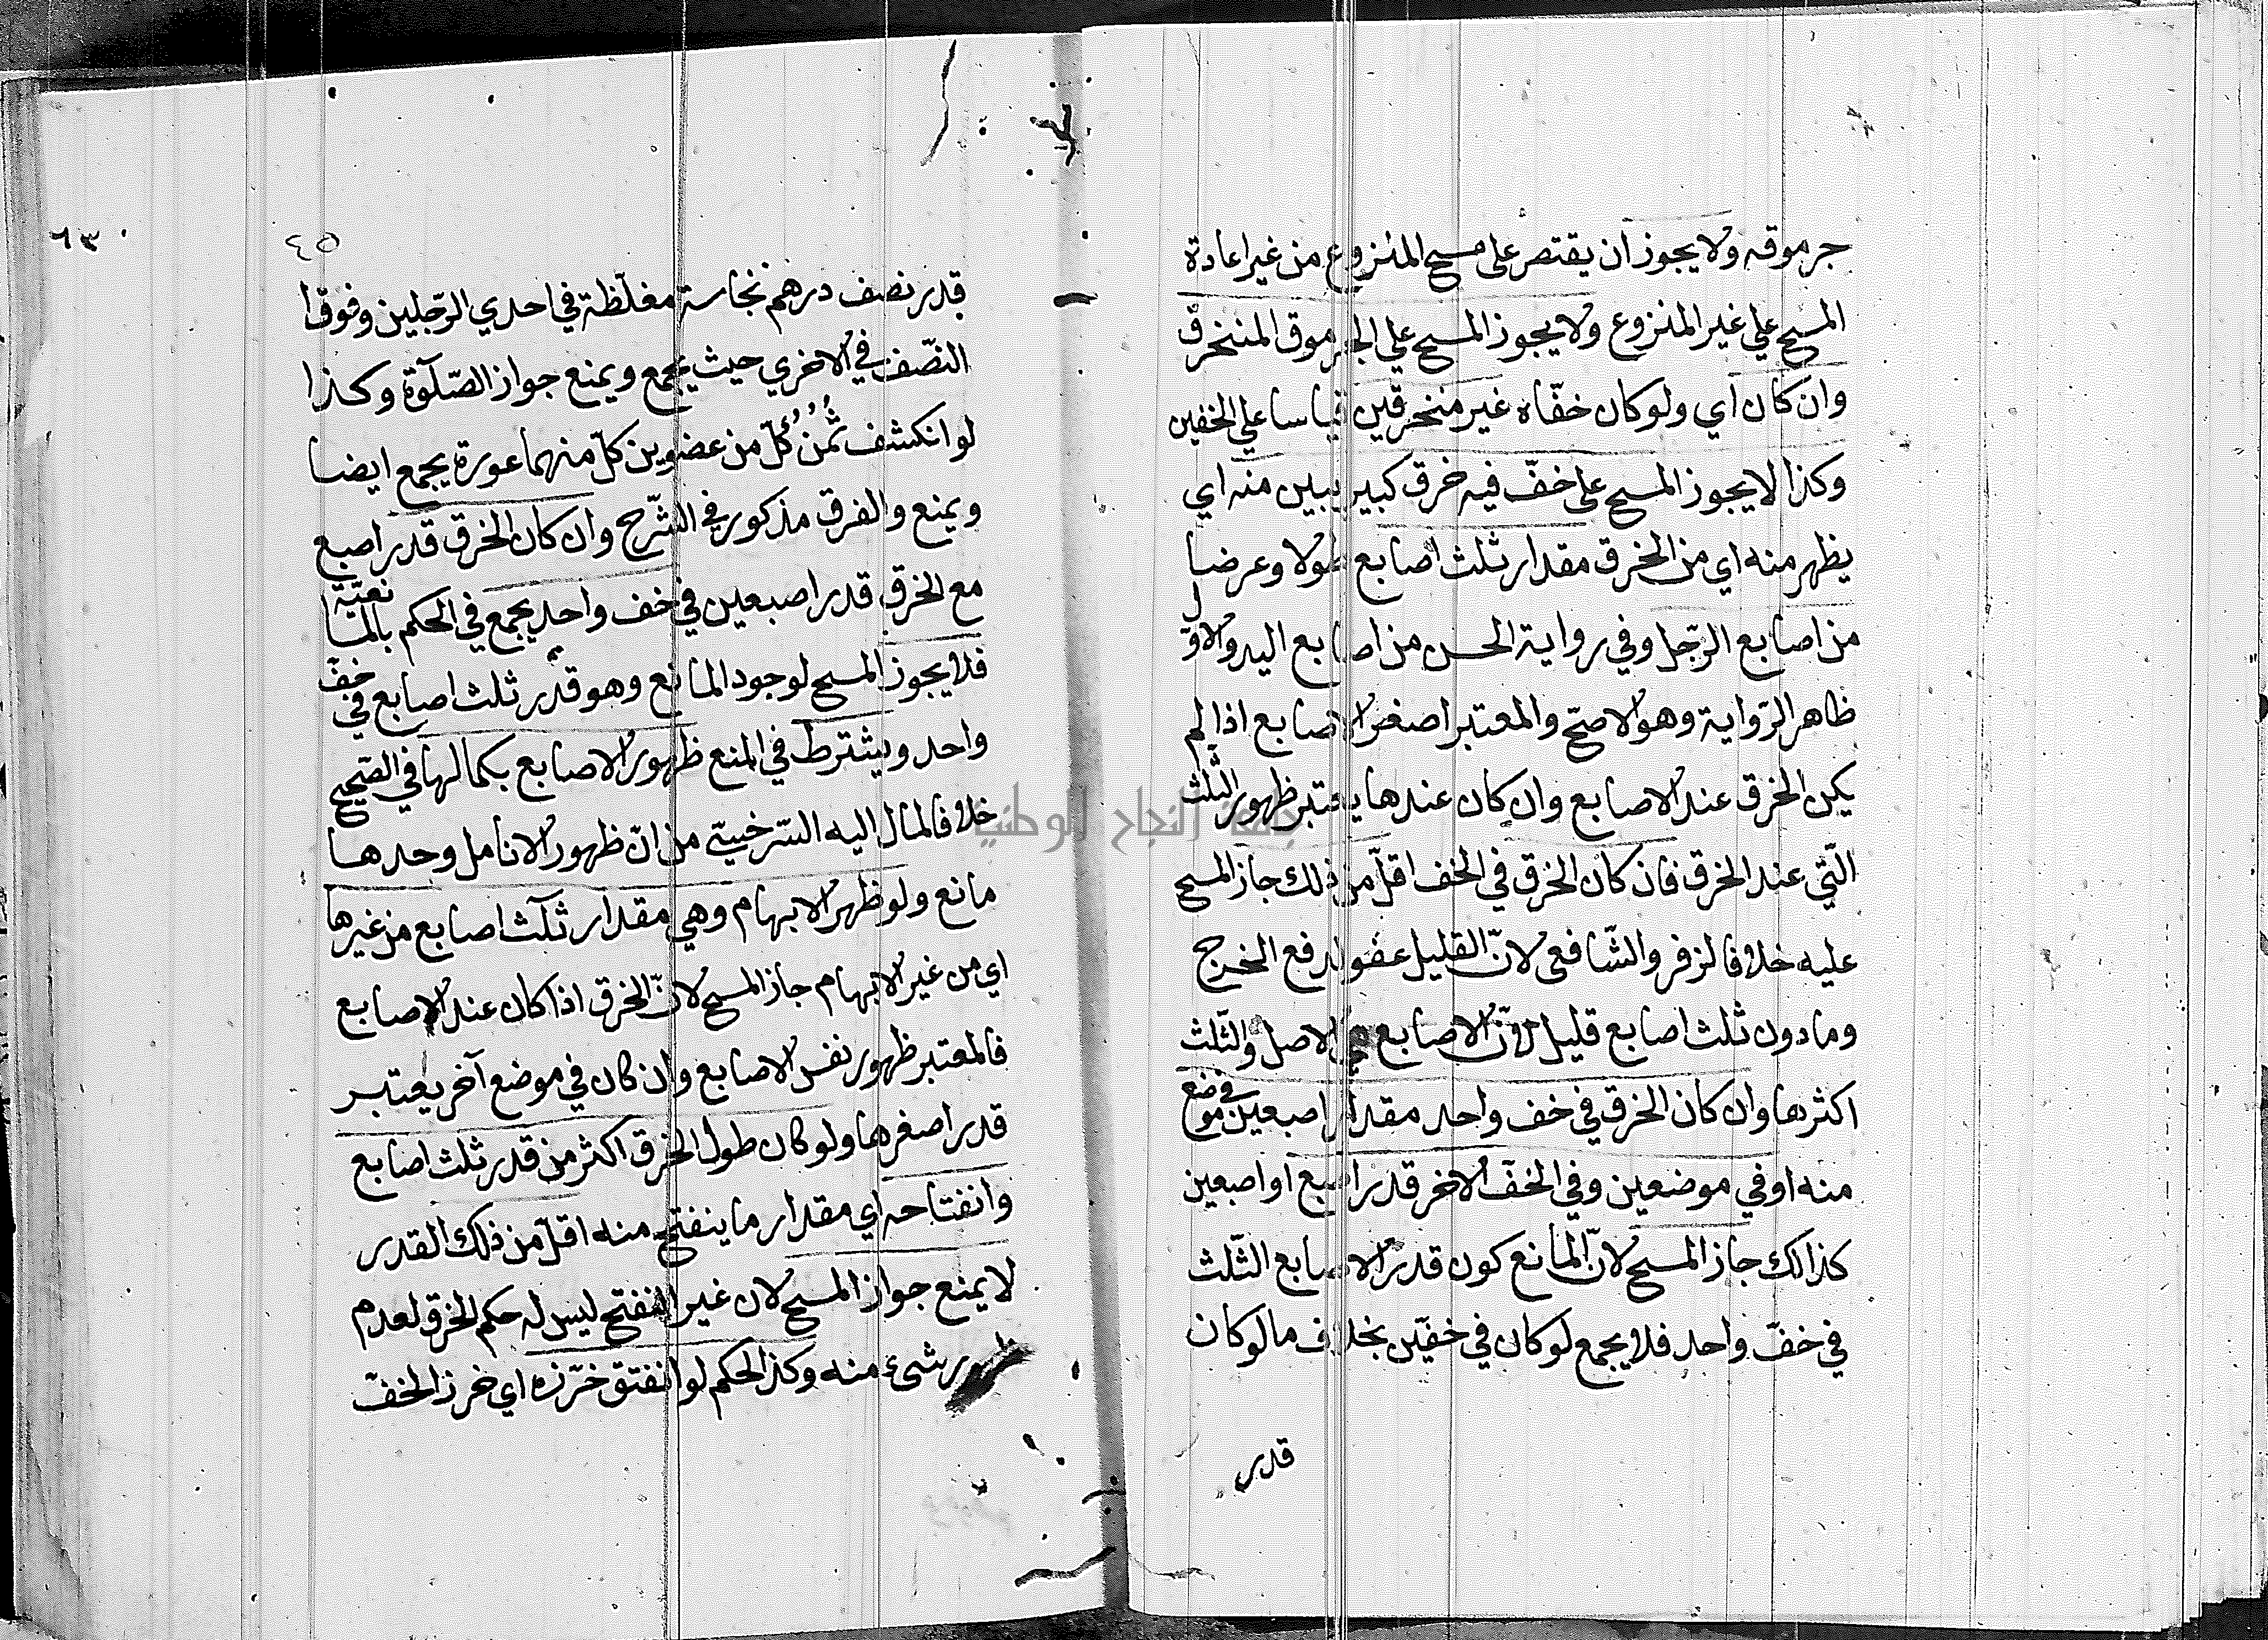 جرموقه ولا يجوز ان يقتصر على مسح المنزوع من غير اعادة
المسح علي غير المنزوع ولا يجوز المسح علي الجرموق المنخرق
وان كان اي ولو كان خفّاه غير منخرقين قياسا علي الخفين
وكذا لا يجوز المسح على خفّ فيه خرق كبير يبين منه اي
يظهر منه اي من الخرق مقدار ثلث اصابع طولا وعرضا
من اصابع الرّجل وفي رواية الحسن من اصابع اليد والاوّل
ظاهر الرّواية وهو الاصحّ والمعتبر اصغر الاصابع اذا لم
يكن الخرق عند الاصابع وان كان عندها يعتبر ظهور الثّلث
الّتي عند الخرق فان كان الخرق في الخف اقلّ من ذلك جاز المسح
عليه خلافا لزفر والشّافعي لانّ القليل عفو لدفع الحرج
وما دون ثلث اصابع قليل لانّ الاصابع هي الاصل والثّلث
اكثرها وان كان الخرق في خف واحد مقدار اصبعين في موضع
منه او في موضعين وفي الخفّ الاخر قدر اصبع او اصبعين
كذالك جاز المسح لانّ المانع كون قدر الاصابع الثّلث
في خفّ واحد فلا يجمع لو كان في خفّين بخلاف ما لو كان
قدر
٦٣
٤٥
قدر نصف درهم نجاسة مغلّظة في احدي الرّجلين وفوق ا
النصّف في الاخري حيث يجمع ويمنع جواز الصّلوة وكذا
لو انكشف ثُمُن كُلّ من عضوين كلّ منهما عورة يجمع ايضا
ويمنع والفرق مذكور في الشّرح وان كان الخرق قدر اصبع
مع الخرق قدر اصبعين في خف واحد يجمع في الحكم بالمانعيّة
فلا يجوز المسح لوجود المانع وهو قدر ثلث اصابع في خفّ
واحد ويشترط في المنع ظهور الاصابع بكمالها في الصّحيح
خلافا لما مال اليه السّرخسيّ من انّ ظهور الانامل وحدها
مانع ولو ظهر الابهام وهي مقدار ثلث اصابع من غيرها
اي من غير الابهام جاز المسح لانّ الخرق اذا كان عند الاصابع
فالمعتبر ظهور نفس الاصابع وان كان في موضع آخر يعتبر
قدر اصغرها ولو كان طول الخرق اكثر من قدر ثلث اصابع
وانفتاحه اي مقدار ما ينفتح منه اقلّ من ذلك القدر
لا يمنع جواز المسح لان غير المنفتح ليس له حكم الخرق لعدم
ظهور شيء منه وكذا الحكم لو انفتق خرزه اي خرز الخفّ
جامعة النجاح الوطنية